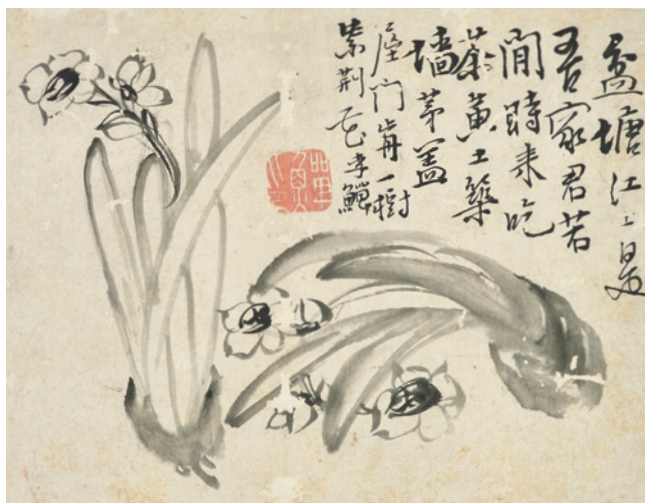 塘江上是
吾家君若
閒時来吃
茶黄土築
墙茅盖
屋門歬一樹
紫荆花李鱓